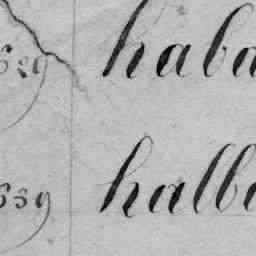 629) haba
639) halb